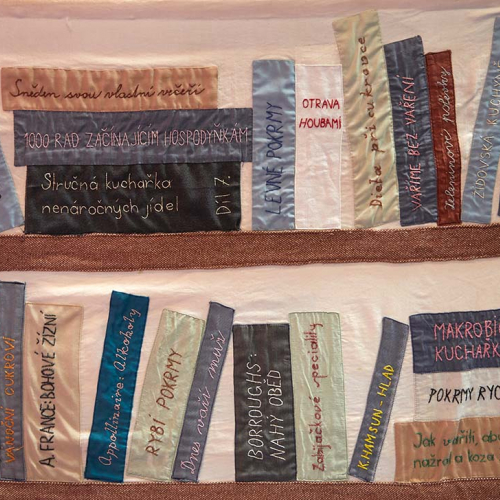 Sněden svou vlastní večeří
1000 RAD ZAČÍNAJÍCÍM HOSPODYŇKÁM
Stručná kuchařka
nenáročných jídel
Díl 7.
LEVNÉ POKRMY
OTRAVA
HOUBAMI
Dieta při cukrovce
VAŘÍME BEZ VAŘENÍ
Zeleninové polévky
ŽIDOVSKÁ
CUKROVÍ
A. FRANCE: BOHOVÉ ŽÍZNÍ
Appollinaire: Alkoholy
RYBÍ POKRMY
Dnes vaří muži
BORROUGHS:
NAHÝ OBĚD
Zabijačkové speciality
K. HAMSUN - HLAD
MAKROBI
KUCHAŘK
POKRMY RYC
Jak vařili, aby
nažral a koza